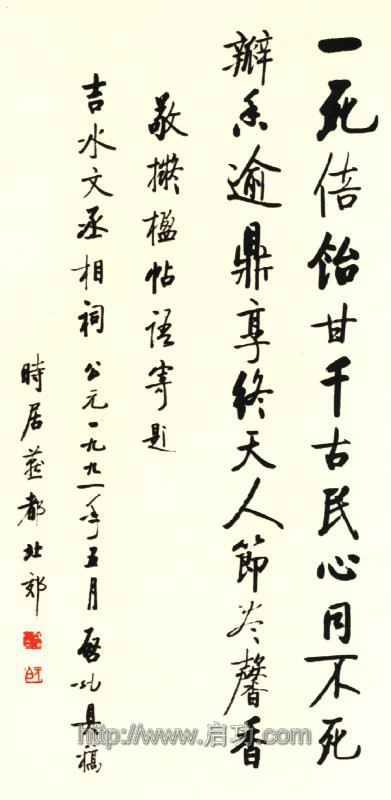 一死倍飴甘千古民心同不死
瓣香逾鼎享終天人節馨香
敬楹帖語寄題
吉水文丞相祠 公元一九九一年五月 啟功具稿
時居燕都北郊
http://www.启功.com